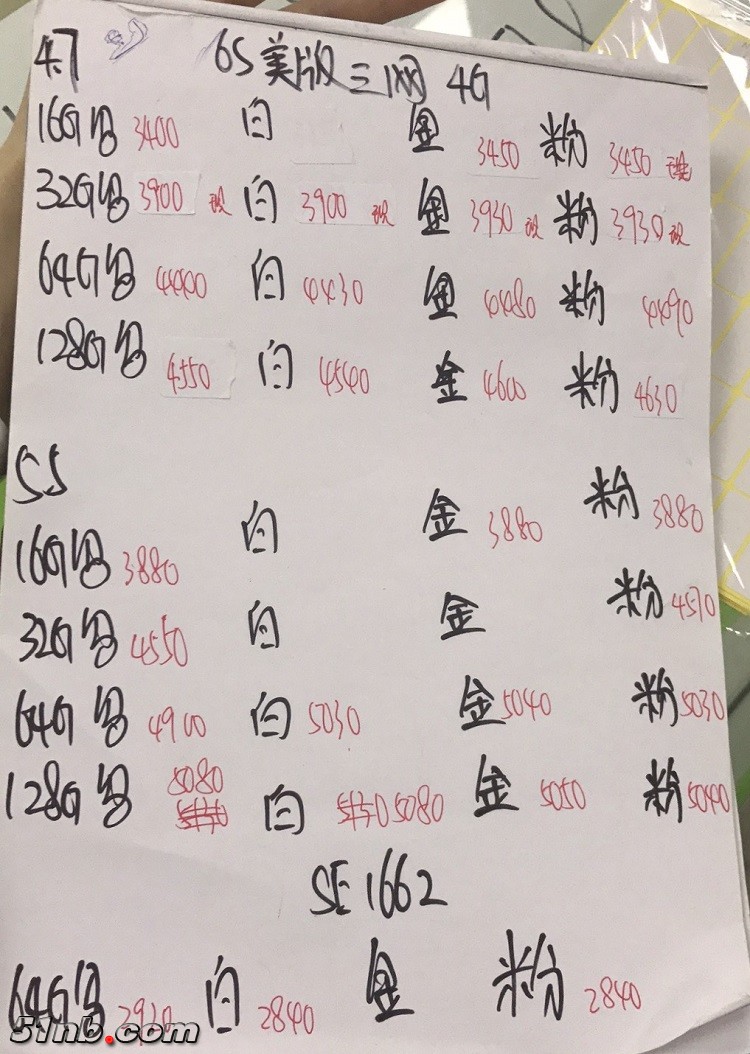 4.7 6S美版三网 4G
16G 黑 3400 白 金 3450 粉 3450 现
32G 黑 3900 现 白 3900 现 金 3930 现 粉 3930 现
64G 黑 4440 白 4430 金 4480 粉 4490
128G 黑 4550 白 4540 金 4600 粉 4630
5.5
16G 黑 3880 白 金 3880 粉 3880
32G 黑 4550 白 金 粉 4570
64G 黑 4900 白 5030 金 5040 粉 5030
128G 黑 5080 白 5080 金 5050 粉 5040
SE 1662
64G 黑 2920 白 2840 金 粉 2840
51nb.com